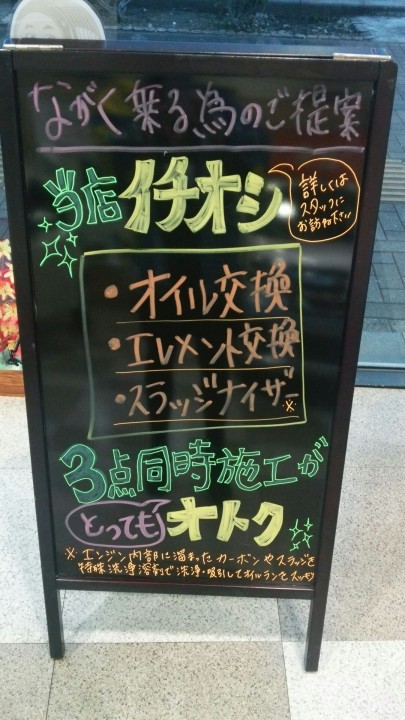 ながく乗る為のご提案
当店イチオシ
詳しくは
スタッフに
お訪ね下さい
・オイル交換
・エレメント交換
・スラッジナイザー※
3点同時施工が
とってもオトク
※エンジン内部に溜まったカーボンやスラッジを
特殊洗浄溶剤で洗浄・吸引してオイルラインをスッキリ